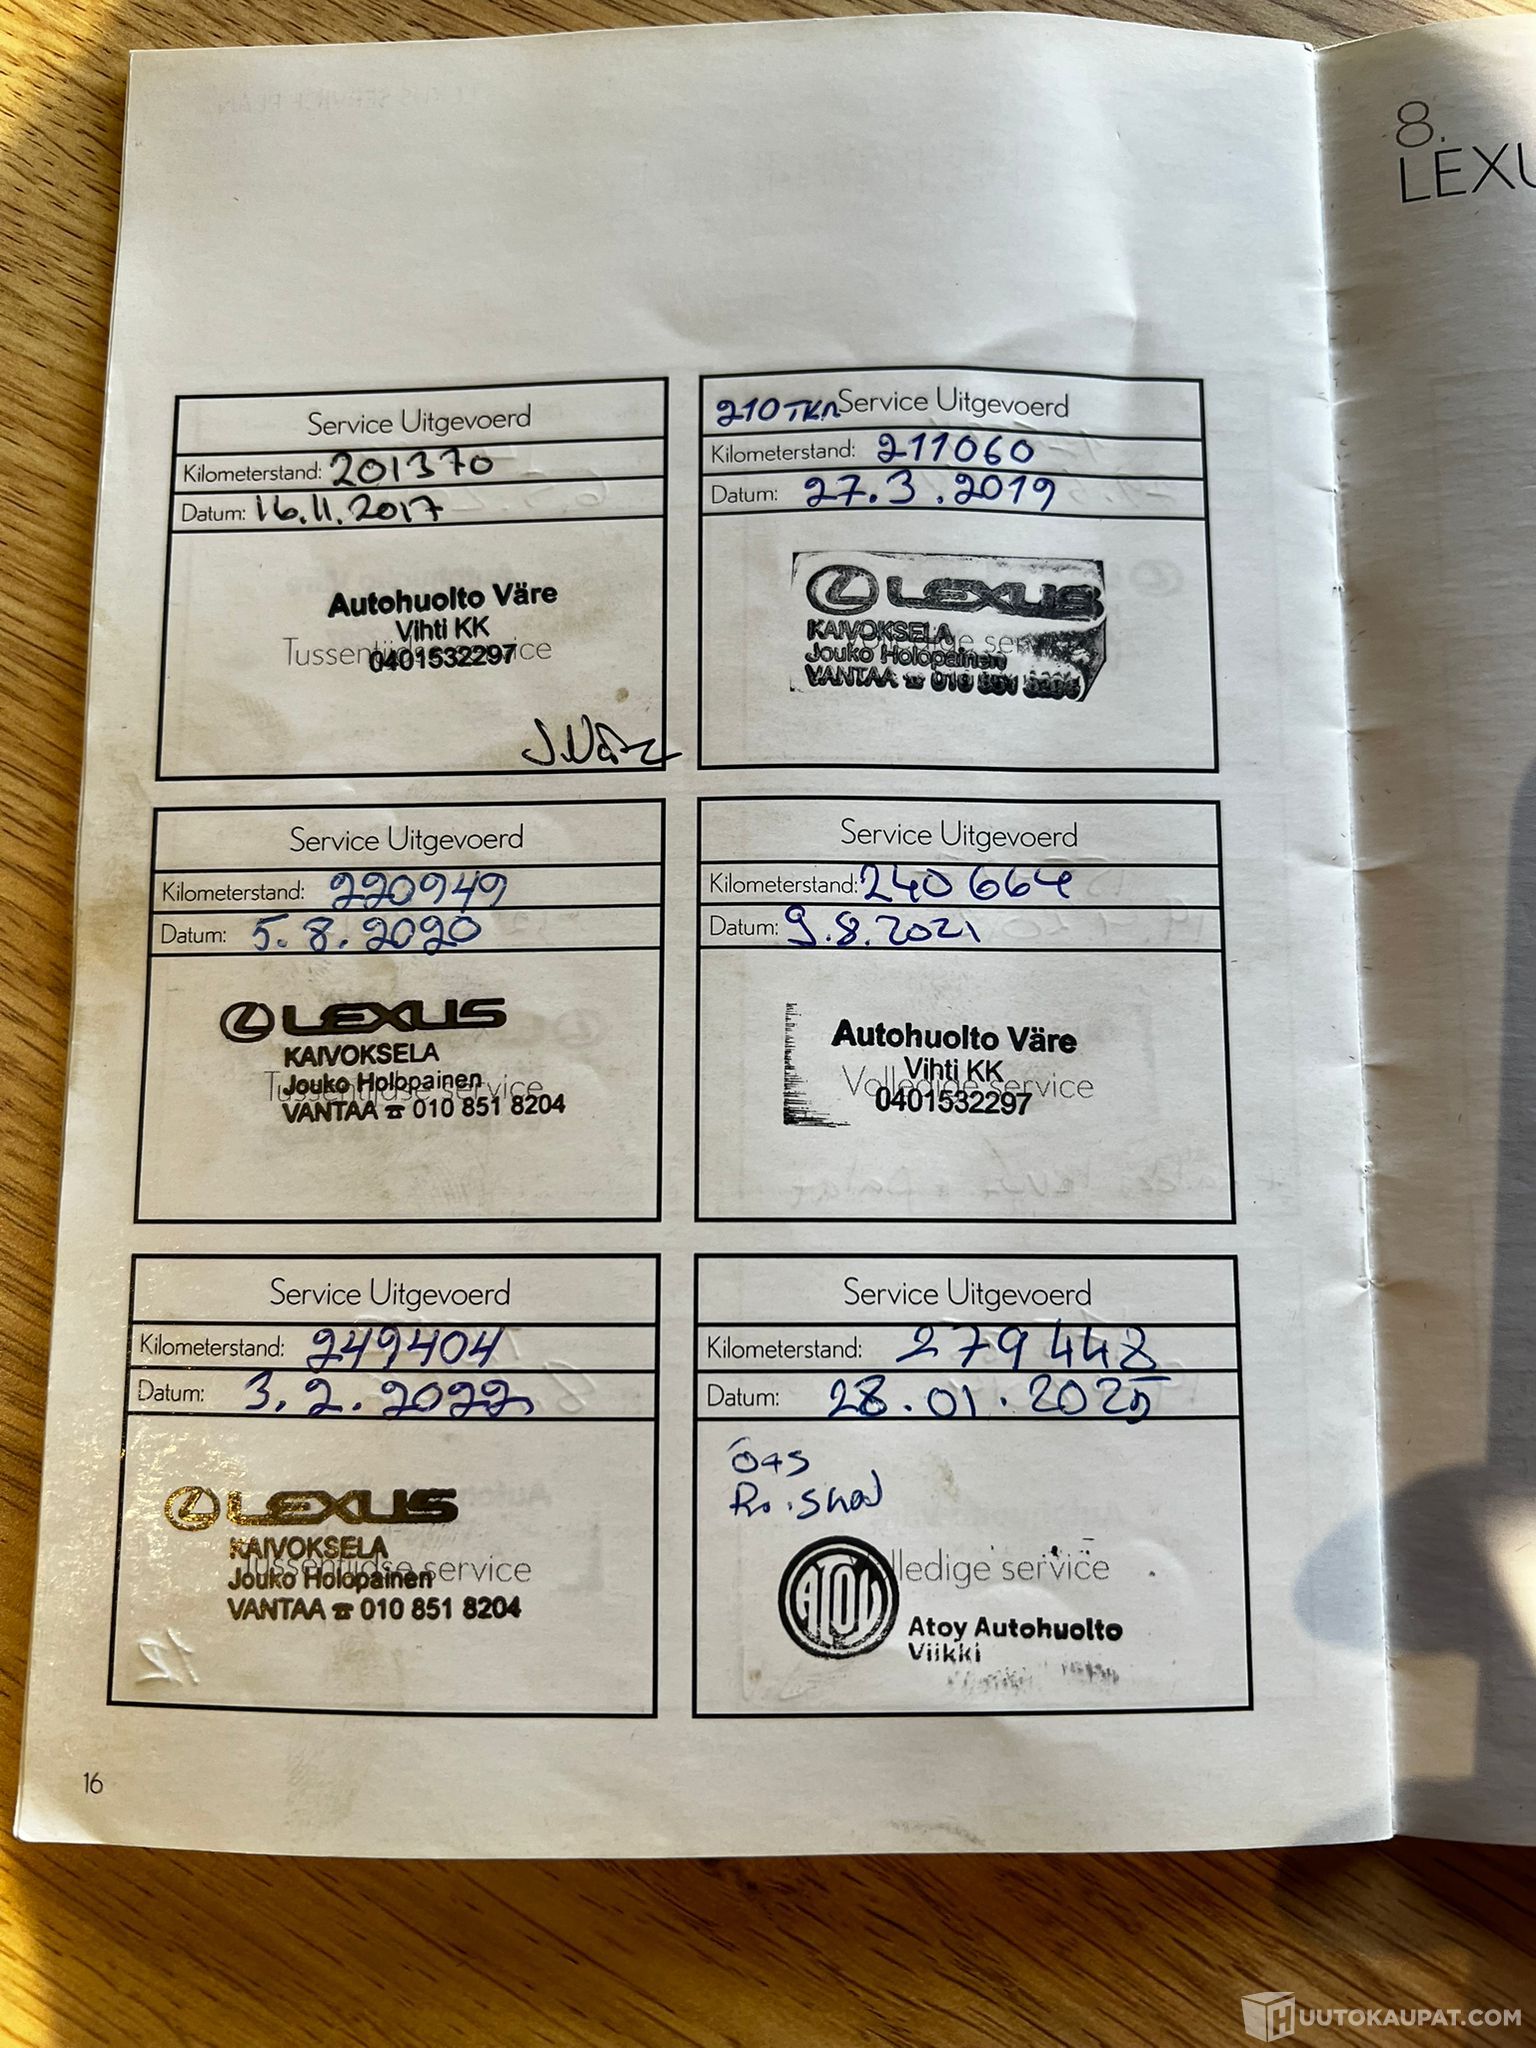 8.
LEXU
Service Uitgevoerd
Kilometerstand: 201370
Datum: 16.11.2017
Autohuolto Väre
Vihti KK
Tussentijdse service
0401532297
210 TKM Service Uitgevoerd
Kilometerstand: 211060
Datum: 27.3.2019
LEXUS
KAIVOKSELA
Volledige service
Jouko Holopainen
VANTAA ☎ 010 851 8204
Service Uitgevoerd
Kilometerstand: 220949
Datum: 5.8.2020
LEXUS
KAIVOKSELA
Jouko Holopainen
Tussentijdse service
VANTAA ☎ 010 851 8204
Service Uitgevoerd
Kilometerstand: 240664
Datum: 9.8.2021
Autohuolto Väre
Vihti KK
Volledige service
0401532297
Service Uitgevoerd
Kilometerstand: 249404
Datum: 3.2.2022
LEXUS
KAIVOKSELA
Tussentijdse service
Jouko Holopainen
VANTAA ☎ 010 851 8204
Service Uitgevoerd
Kilometerstand: 279448
Datum: 28.01.2025
Volledige service
ATOY
Atoy Autohuolto
Viikki
16
HUUTOKAUPAT.COM